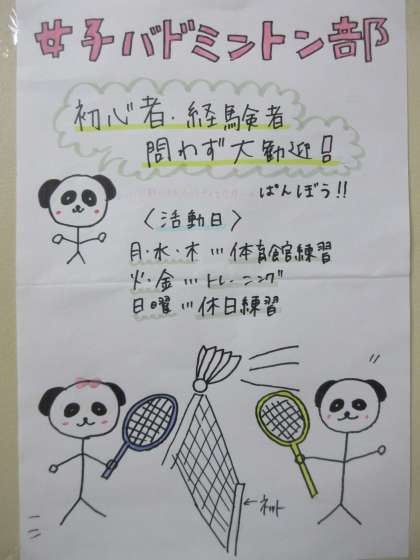 女子バドミントン部
初心者・経験者
問わず大歓迎!!
ぱんぼう!!
〈活動日〉
月・水・木…体育館練習
火・金…トレーニング
日曜…休日練習
ネット